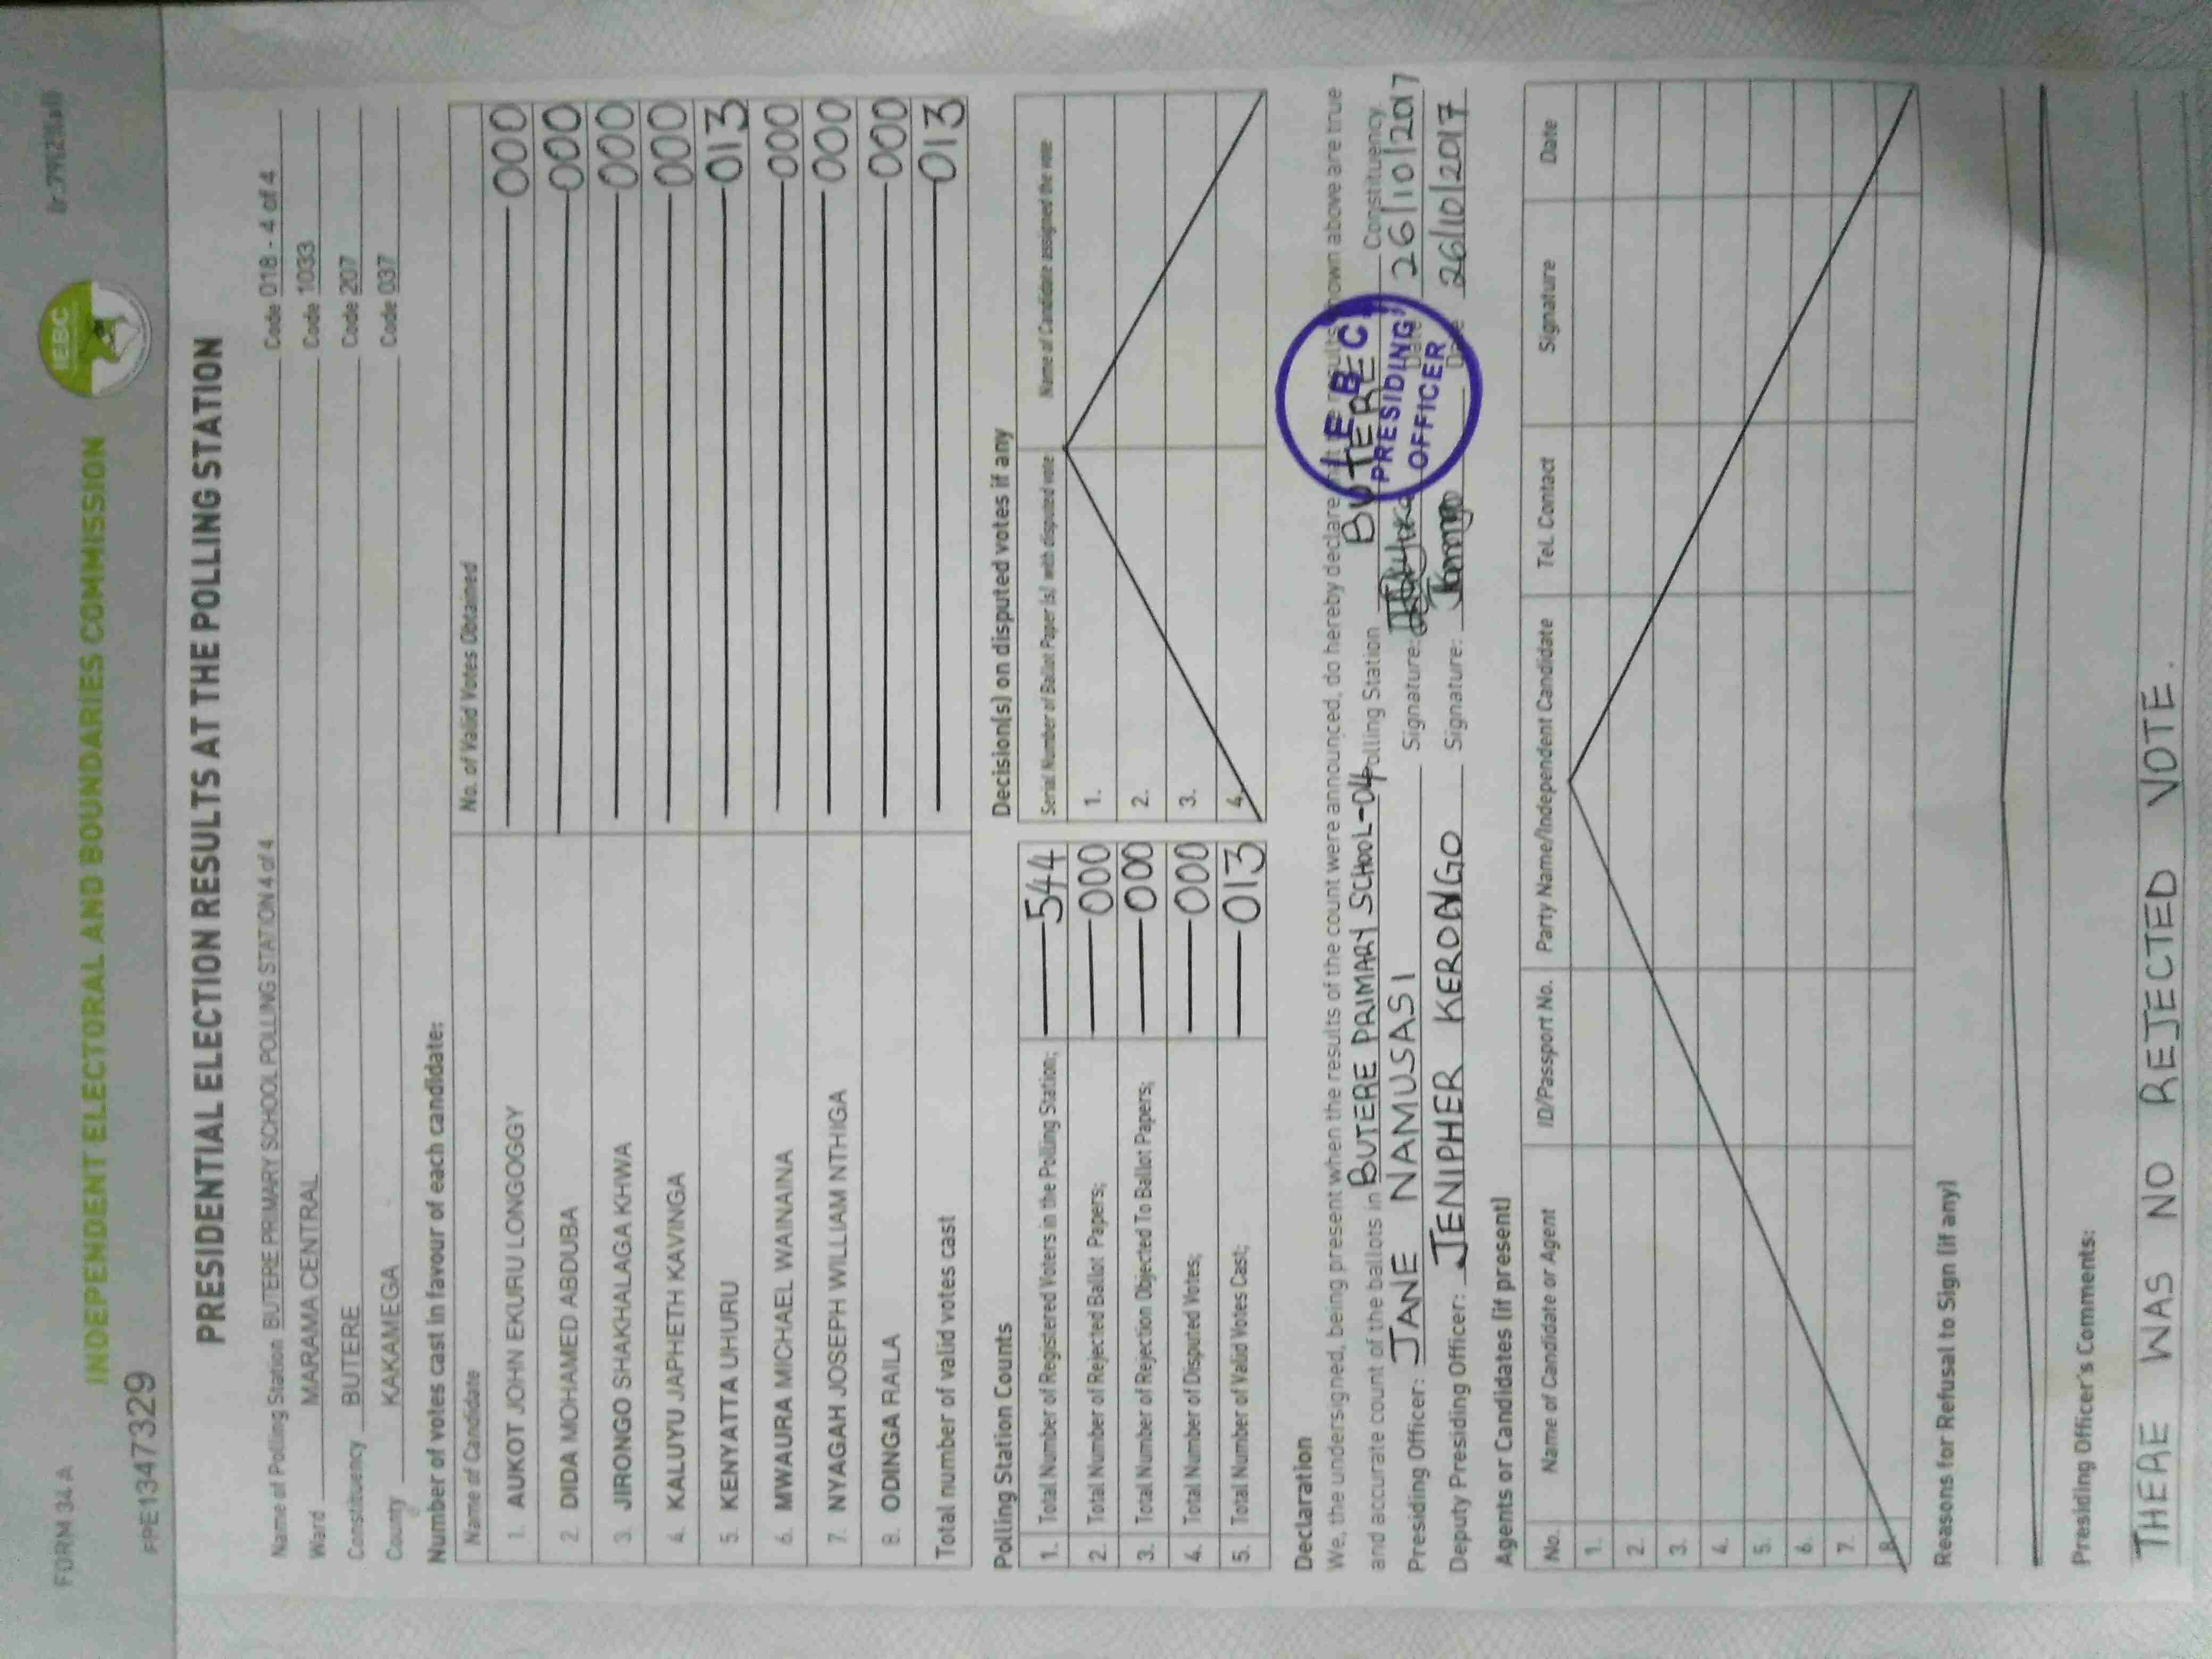 FORM 34A
INDEPENDENT ELECTORAL AND BOUNDARIES COMMISSION
IEBC
FPE1347329
PRESIDENTIAL ELECTION RESULTS AT THE POLLING STATION
Name of Polling Station BUTERE PRIMARY SCHOOL POLLING STATION 4 of 4 Code 018 - 4 of 4
Ward MARAMA CENTRAL Code 1033
Constituency BUTERE Code 207
County KAKAMEGA Code 037
Number of votes cast in favour of each candidate:
Name of Candidate No. of Valid Votes Obtained
1. AUKOT JOHN EKURU LONGOGGY 000
2. DIDA MOHAMED ABDUBA 000
3. JIRONGO SHAKHALAGA KHWA 000
4. KALUYU JAPHETH KAVINGA 000
5. KENYATTA UHURU 013
6. MWAURA MICHAEL WAINAINA 000
7. NYAGAH JOSEPH WILLIAM NTHIGA 000
8. ODINGA RAILA 000
Total number of valid votes cast 013
Polling Station Counts
1. Total Number of Registered Voters in the Polling Station; 544
2. Total Number of Rejected Ballot Papers; 000
3. Total Number of Rejection Objected To Ballot Papers; 000
4. Total Number of Disputed Votes; 000
5. Total Number of Valid Votes Cast; 013
Decision(s) on disputed votes if any
Serial Number of Ballot Paper (s) with disputed vote Name of Candidate assigned the vote
1.
2.
3.
4.
Declaration
We, the undersigned, being present when the results of the count were announced, do hereby declare that the results shown above are true
and accurate count of the ballots in BUTERE PRIMARY SCHOOL-04 Polling Station BUTERE Constituency.
Presiding Officer: JANE NAMUSASI Signature: Date 26/10/2017
Deputy Presiding Officer: JENIPHER KERONGO Signature: Date 26/10/2017
IEBC
PRESIDING
OFFICER
Agents or Candidates (if present)
No. Name of Candidate or Agent ID/Passport No. Party Name/Independent Candidate Tel. Contact Signature Date
1.
2.
3.
4.
5.
6.
7.
8.
Reasons for Refusal to Sign (if any)
Presiding Officer's Comments:
THERE WAS NO REJECTED VOTE.